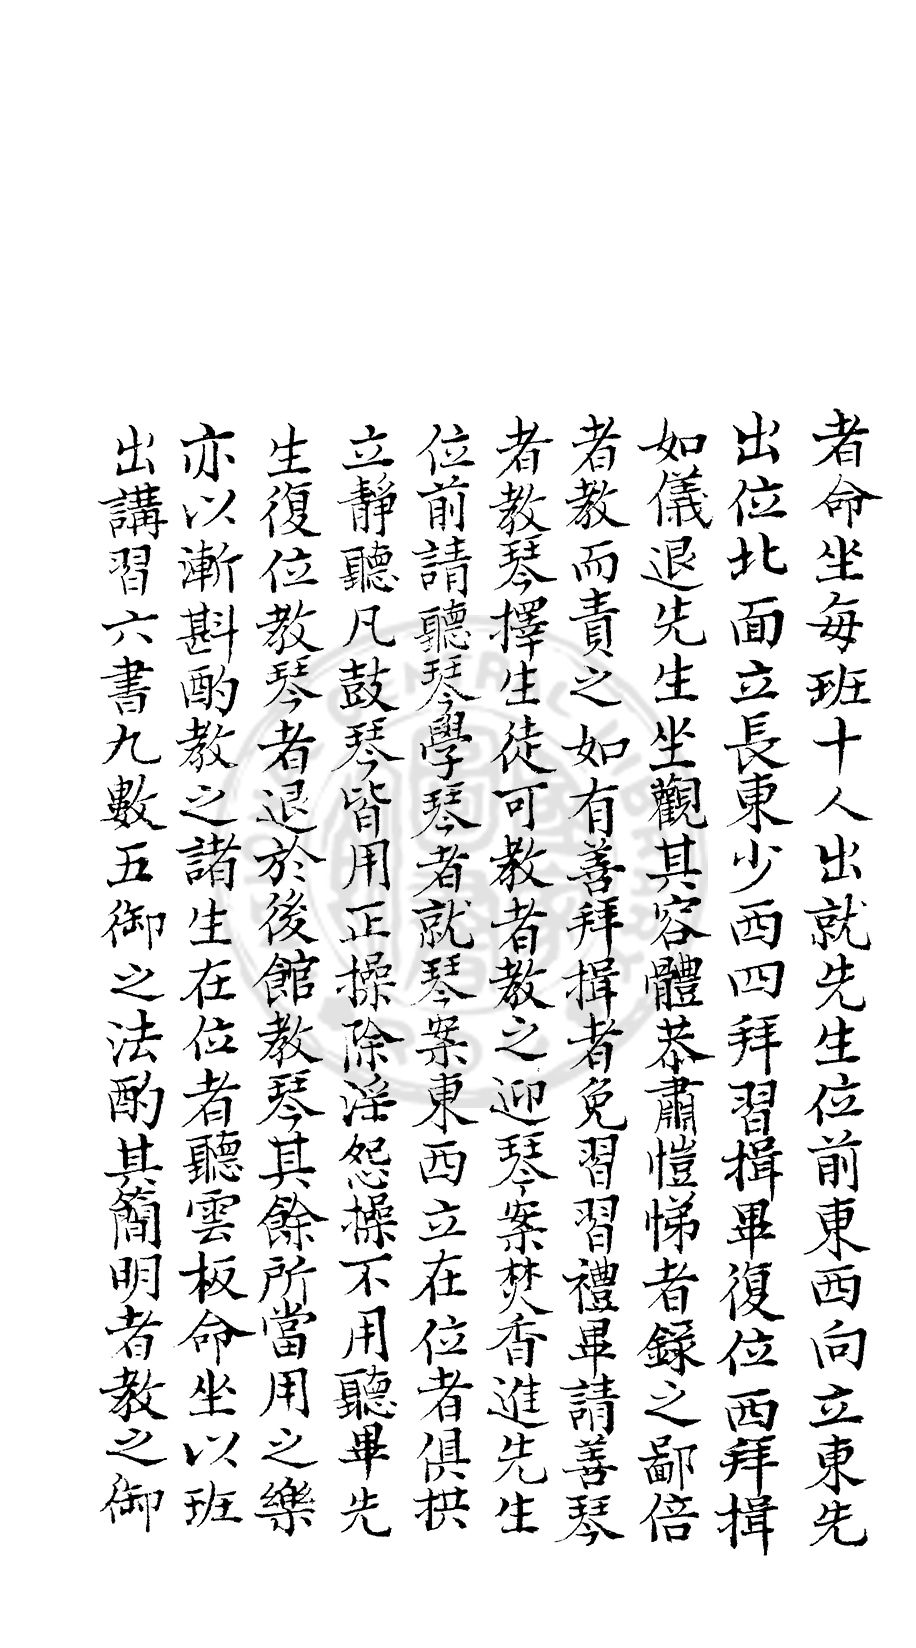 者命坐每班十人出就先生位前東西向立東先
出位北面立長東少西四拜習揖畢復位西拜揖
如儀退先生坐觀其容體恭肅愷悌者錄之鄙倍
者教而責之如有善拜揖者免習習禮畢請善琴
者教琴擇生徒可教者教之迎琴案焚香進先生
位前請聽琴學琴者就琴案東西立在位者俱拱
立靜聽凡鼓琴皆用正操除淫怨操不用聽畢先
生復位教琴者退於後館教琴其餘所當用之樂
亦以漸斟酌教之諸生在位者聽雲板命坐以班
出講習六書九數五御之法酌其簡明者教之御